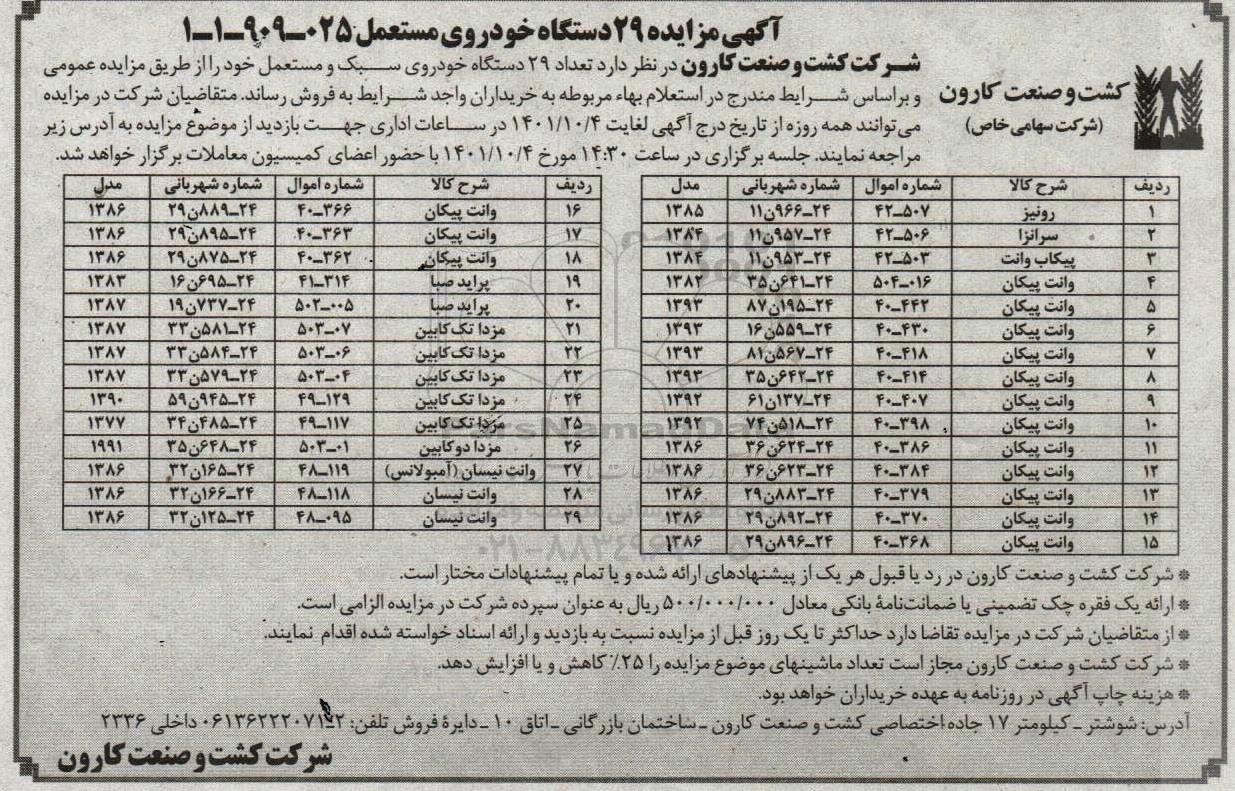 آگهی مزایده ۲۹ دستگاه خودروی مستعمل ۰۲۵-۹۰۹-۱-۱
کشت و صنعت کارون
(شرکت سهامی خاص)
شرکت کشت و صنعت کارون در نظر دارد تعداد ۲۹ دستگاه خودروی سبک و مستعمل خود را از طریق مزایده عمومی
و براساس شرایط مندرج در استعلام بهاء مربوطه به خریداران واجد شرایط به فروش رساند. متقاضیان شرکت در مزایده
می‌توانند همه روزه از تاریخ درج آگهی لغایت ۱۴۰۱/۱۰/۴ در ساعات اداری جهت بازدید از موضوع مزایده به آدرس زیر
مراجعه نمایند. جلسه برگزاری در ساعت ۱۴:۳۰ مورخ ۱۴۰۱/۱۰/۴ با حضور اعضای کمیسیون معاملات برگزار خواهد شد.
ردیف شرح کالا شماره اموال شماره شهربانی مدل
۱ رونیز ۴۲-۵۰۷ ۲۴-۹۶۶ن۱۱ ۱۳۸۵
۲ سرانزا ۴۲-۵۰۶ ۲۴-۹۵۷ن۱۱ ۱۳۸۴
۳ پیکاب وانت ۴۲-۵۰۳ ۲۴-۹۵۳ن۱۱ ۱۳۸۴
۴ وانت پیکان ۵۰۴-۰۱۶ ۲۴-۶۴۱ن۳۵ ۱۳۸۲
۵ وانت پیکان ۴۰-۴۴۲ ۲۴-۱۹۵ن۸۷ ۱۳۹۳
۶ وانت پیکان ۴۰-۴۳۰ ۲۴-۵۵۹ن۱۶ ۱۳۹۳
۷ وانت پیکان ۴۰-۴۱۸ ۲۴-۵۶۷ن۸۱ ۱۳۹۳
۸ وانت پیکان ۴۰-۴۱۴ ۲۴-۶۴۲ن۳۵ ۱۳۹۳
۹ وانت پیکان ۴۰-۴۰۷ ۲۴-۱۳۷ن۶۱ ۱۳۹۲
۱۰ وانت پیکان ۴۰-۳۹۸ ۲۴-۵۱۸ن۷۴ ۱۳۹۲
۱۱ وانت پیکان ۴۰-۳۸۶ ۲۴-۶۲۴ن۳۶ ۱۳۸۶
۱۲ وانت پیکان ۴۰-۳۸۴ ۲۴-۶۲۳ن۳۶ ۱۳۸۶
۱۳ وانت پیکان ۴۰-۳۷۹ ۲۴-۸۸۳ن۲۹ ۱۳۸۶
۱۴ وانت پیکان ۴۰-۳۷۰ ۲۴-۸۹۲ن۲۹ ۱۳۸۶
۱۵ وانت پیکان ۴۰-۳۶۸ ۲۴-۸۹۶ن۲۹ ۱۳۸۶
ردیف شرح کالا شماره اموال شماره شهربانی مدل
۱۶ وانت پیکان ۴۰-۳۶۶ ۲۴-۸۸۹ن۲۹ ۱۳۸۶
۱۷ وانت پیکان ۴۰-۳۶۳ ۲۴-۸۹۵ن۲۹ ۱۳۸۶
۱۸ وانت پیکان ۴۰-۳۶۲ ۲۴-۸۷۵ن۲۹ ۱۳۸۶
۱۹ پراید صبا ۴۱-۳۱۴ ۲۴-۶۹۵ن۱۶ ۱۳۸۳
۲۰ پراید صبا ۵۰۲-۰۰۵ ۲۴-۷۳۷ن۱۹ ۱۳۸۷
۲۱ مزدا تک‌کابین ۵۰۳-۰۷ ۲۴-۵۸۱ن۳۳ ۱۳۸۷
۲۲ مزدا تک‌کابین ۵۰۳-۰۶ ۲۴-۵۸۴ن۳۳ ۱۳۸۷
۲۳ مزدا تک‌کابین ۵۰۳-۰۴ ۲۴-۵۷۹ن۳۳ ۱۳۸۷
۲۴ مزدا تک‌کابین ۴۹-۱۲۹ ۲۴-۹۴۵ن۵۹ ۱۳۹۰
۲۵ مزدا تک‌کابین ۴۹-۱۱۷ ۲۴-۴۸۵ن۳۴ ۱۳۷۷
۲۶ مزدا دوکابین ۵۰۳-۰۱ ۲۴-۶۴۸ن۳۵ ۱۹۹۱
۲۷ وانت نیسان (آمبولانس) ۴۸-۱۱۹ ۲۴-۱۶۵ن۳۲ ۱۳۸۶
۲۸ وانت نیسان ۴۸-۱۱۸ ۲۴-۱۶۶ن۳۲ ۱۳۸۶
۲۹ وانت نیسان ۴۸-۰۹۵ ۲۴-۱۲۵ن۳۲ ۱۳۸۶
* شرکت کشت و صنعت کارون در رد یا قبول هر یک از پیشنهادهای ارائه شده و یا تمام پیشنهادات مختار است.
* ارائه یک فقره چک تضمینی یا ضمانت‌نامهٔ بانکی معادل ۵۰۰/۰۰۰/۰۰۰ ریال به عنوان سپرده شرکت در مزایده الزامی است.
* از متقاضیان شرکت در مزایده تقاضا دارد حداکثر تا یک روز قبل از مزایده نسبت به بازدید و ارائه اسناد خواسته شده اقدام نمایند.
* شرکت کشت و صنعت کارون مجاز است تعداد ماشینهای موضوع مزایده را ۲۵٪ کاهش و یا افزایش دهد.
* هزینه چاپ آگهی در روزنامه به عهده خریداران خواهد بود.
آدرس: شوشتر - کیلومتر ۱۷ جاده اختصاصی کشت و صنعت کارون - ساختمان بازرگانی - اتاق ۱۰ - دایرهٔ فروش تلفن: ۲-۰۶۱۳۶۲۲۲۰۷۱ داخلی ۲۳۳۶
شرکت کشت و صنعت کارون